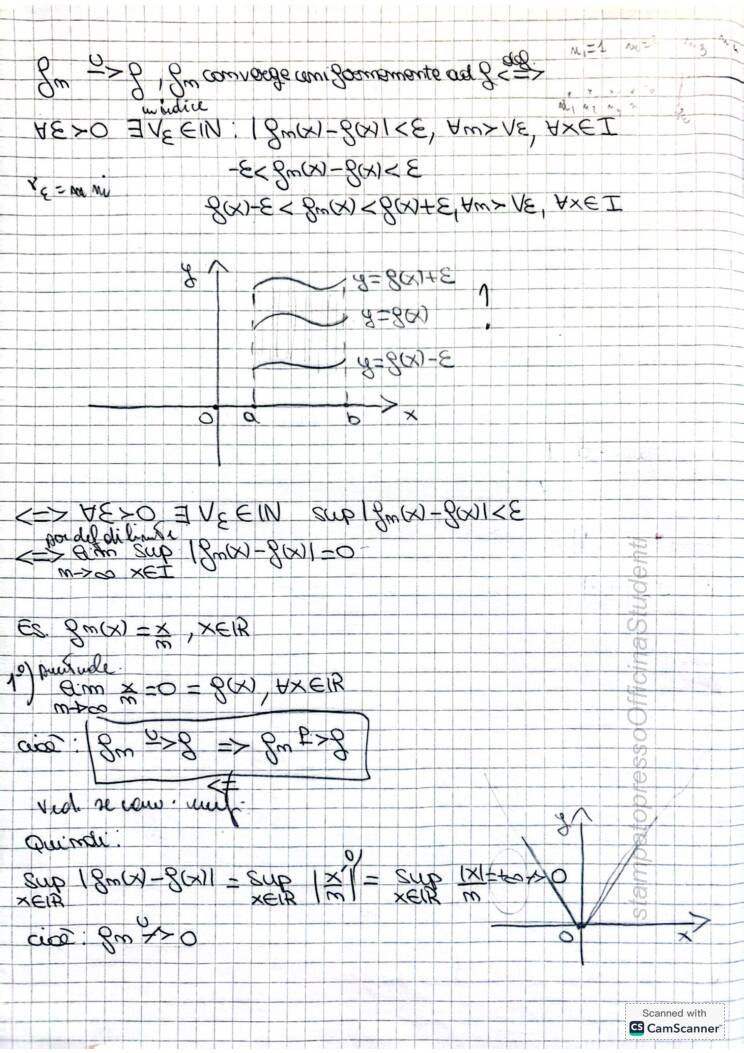 fₙ →ᵁ f, fₙ converge uniformemente ad f ⇔ def.
n₁=1
un indice
∀ε>0 ∃νε∈ℕ : |fₙ(x)-f(x)|<ε, ∀n>νε, ∀x∈I
-ε<fₙ(x)-f(x)<ε
f(x)-ε<fₙ(x)<f(x)+ε, ∀n>νε, ∀x∈I
y
y=f(x)+ε
y=f(x)
!
y=f(x)-ε
0 a b x
⇔ ∀ε>0 ∃νε∈ℕ sup|fₙ(x)-f(x)|<ε
per def di limite
⇔ lim sup |fₙ(x)-f(x)|=0
n→∞ x∈I
Es. fₙ(x)=x/n, x∈ℝ
1°) puntuale.
lim x/n=0=f(x), ∀x∈ℝ
n→∞
cioè: fₙ →ᵁ f ⇒ fₙ →ᴾ f
⇍
Vedi se conv. unif.
Quindi:
sup |fₙ(x)-f(x)| = sup |x/n -0| = sup |x|/n = +∞ ↛ 0
x∈ℝ x∈ℝ x∈ℝ
cioè: fₙ ↛ᵁ 0
y
0 x
stampatopressoOfficinaStudenti
Scanned with
CS CamScanner